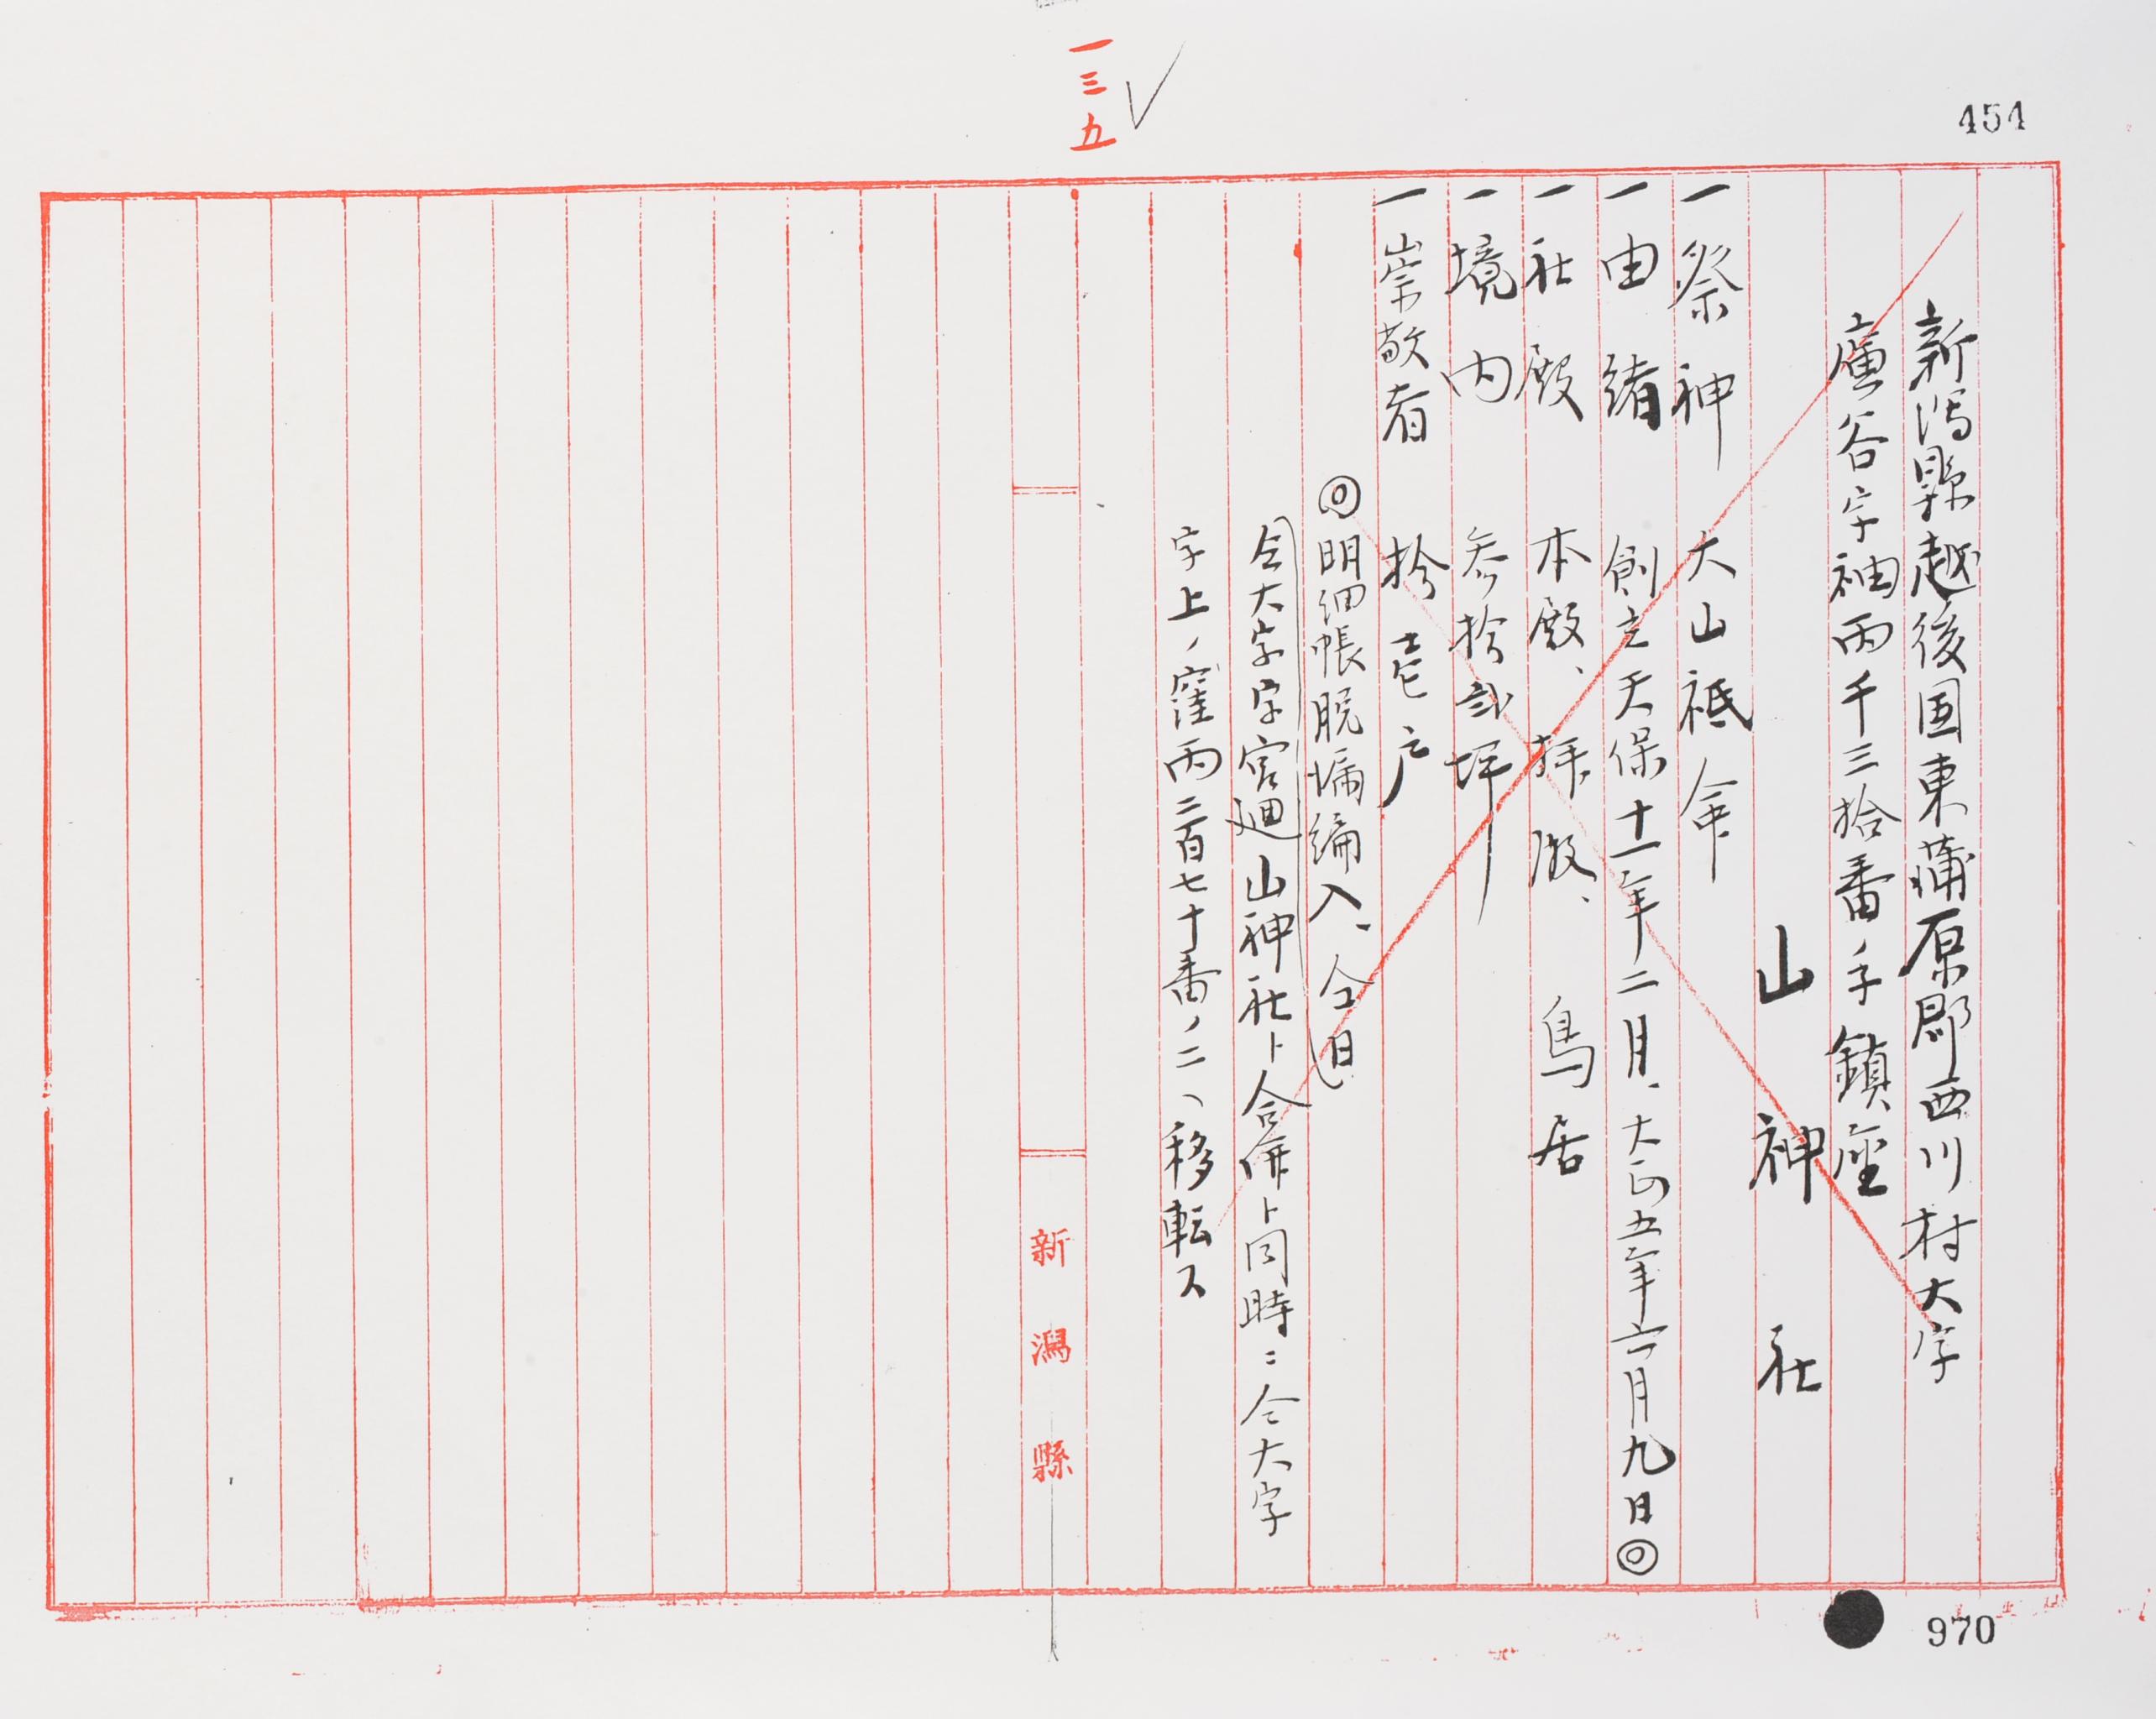 454
一三五
新潟縣越後国東蒲原郡西川村大字
廣谷字袖丙千三拾番子鎮座
山神社
一祭神 大山祗命
一由緒 創立天保十一年二月、大正五年六月九日◎
一社殿 本殿、拝殿、鳥居
一境内 参拾弐坪
一崇敬者 拾壱戸
◎明細帳脱漏編入、仝日
仝大字字宮廻山神社ト合併ト同時ニ仝大字
字上ノ窪丙二百七十番ノ二ヘ移転ス
新潟縣
970